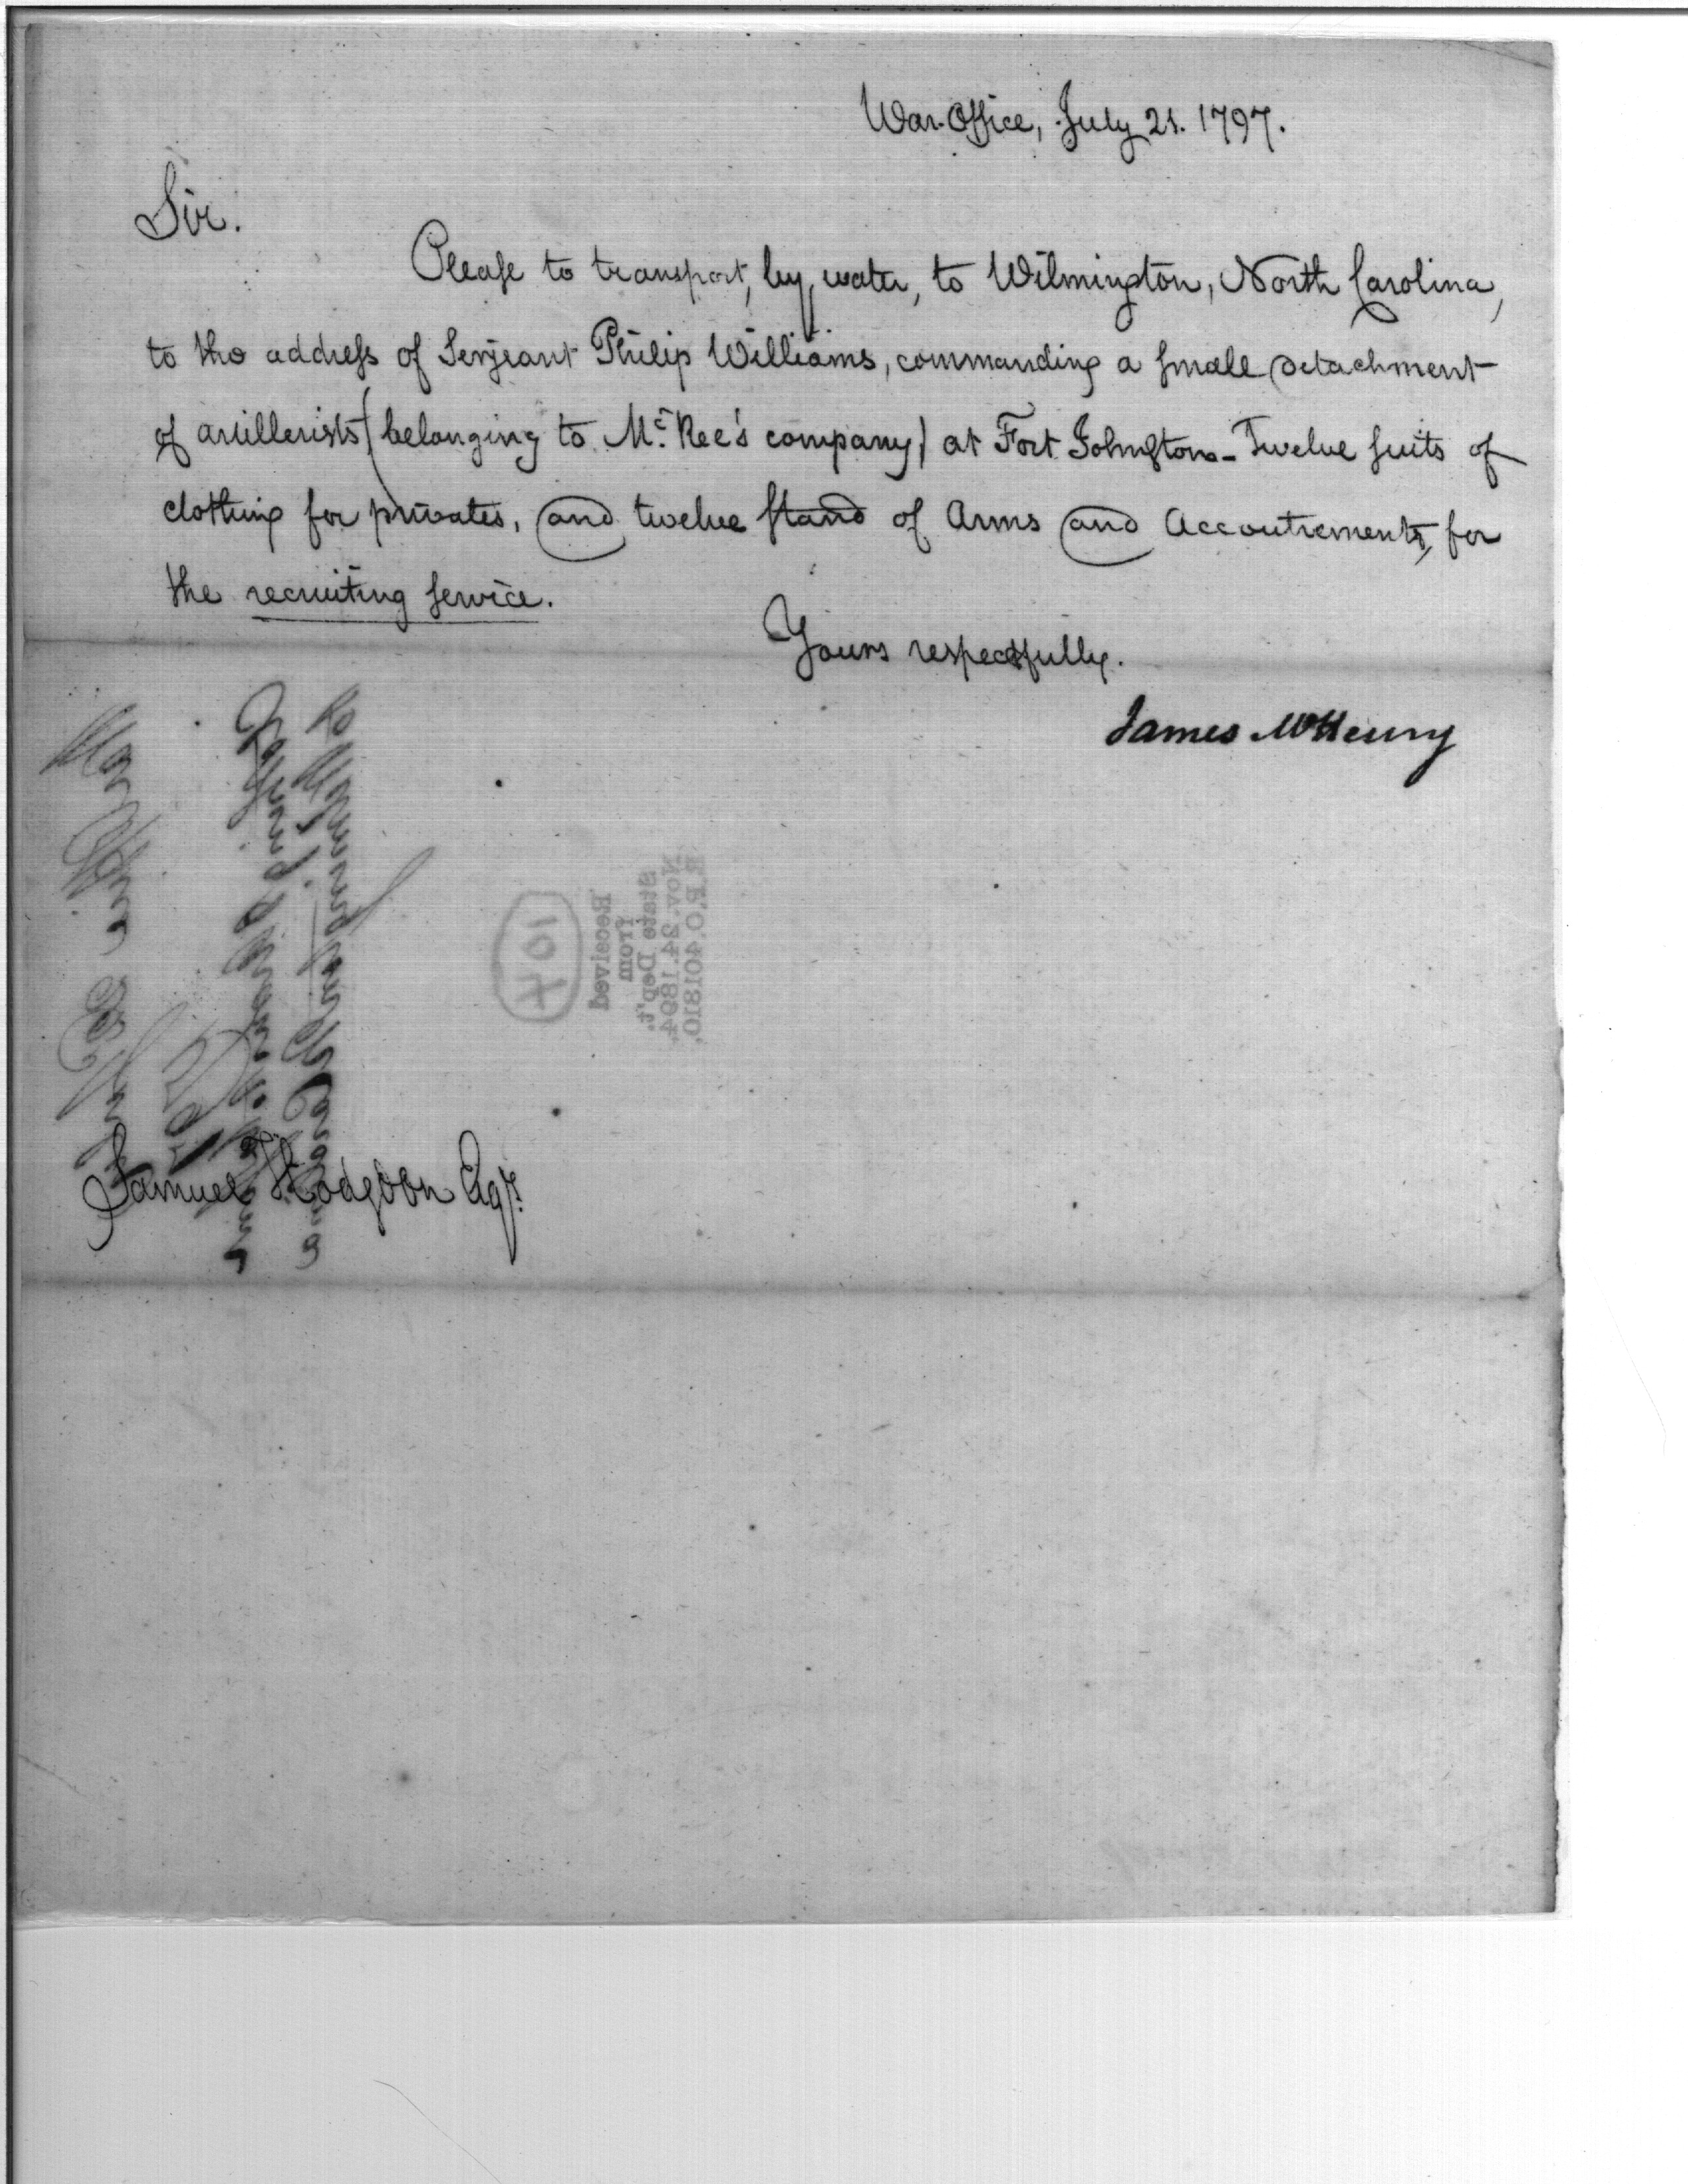 War Office, July 21. 1797.
Sir.
Please to transport, by water, to Wilmington, North Carolina,
to the address of Serjeant Philip Williams, commanding a small detachment
of artillerists (belonging to Mc. Ree's company) at Fort Johnston - Twelve suits of
clothing for privates, and twelve stand of Arms and Accoutrements, for
the recruiting service.
Yours respectfully.
James McHenry
R. P. O. 401810.
Nov. 24. 1894.
State Dep't.
from
Received
104
Samuel Hodgdon Esqr.